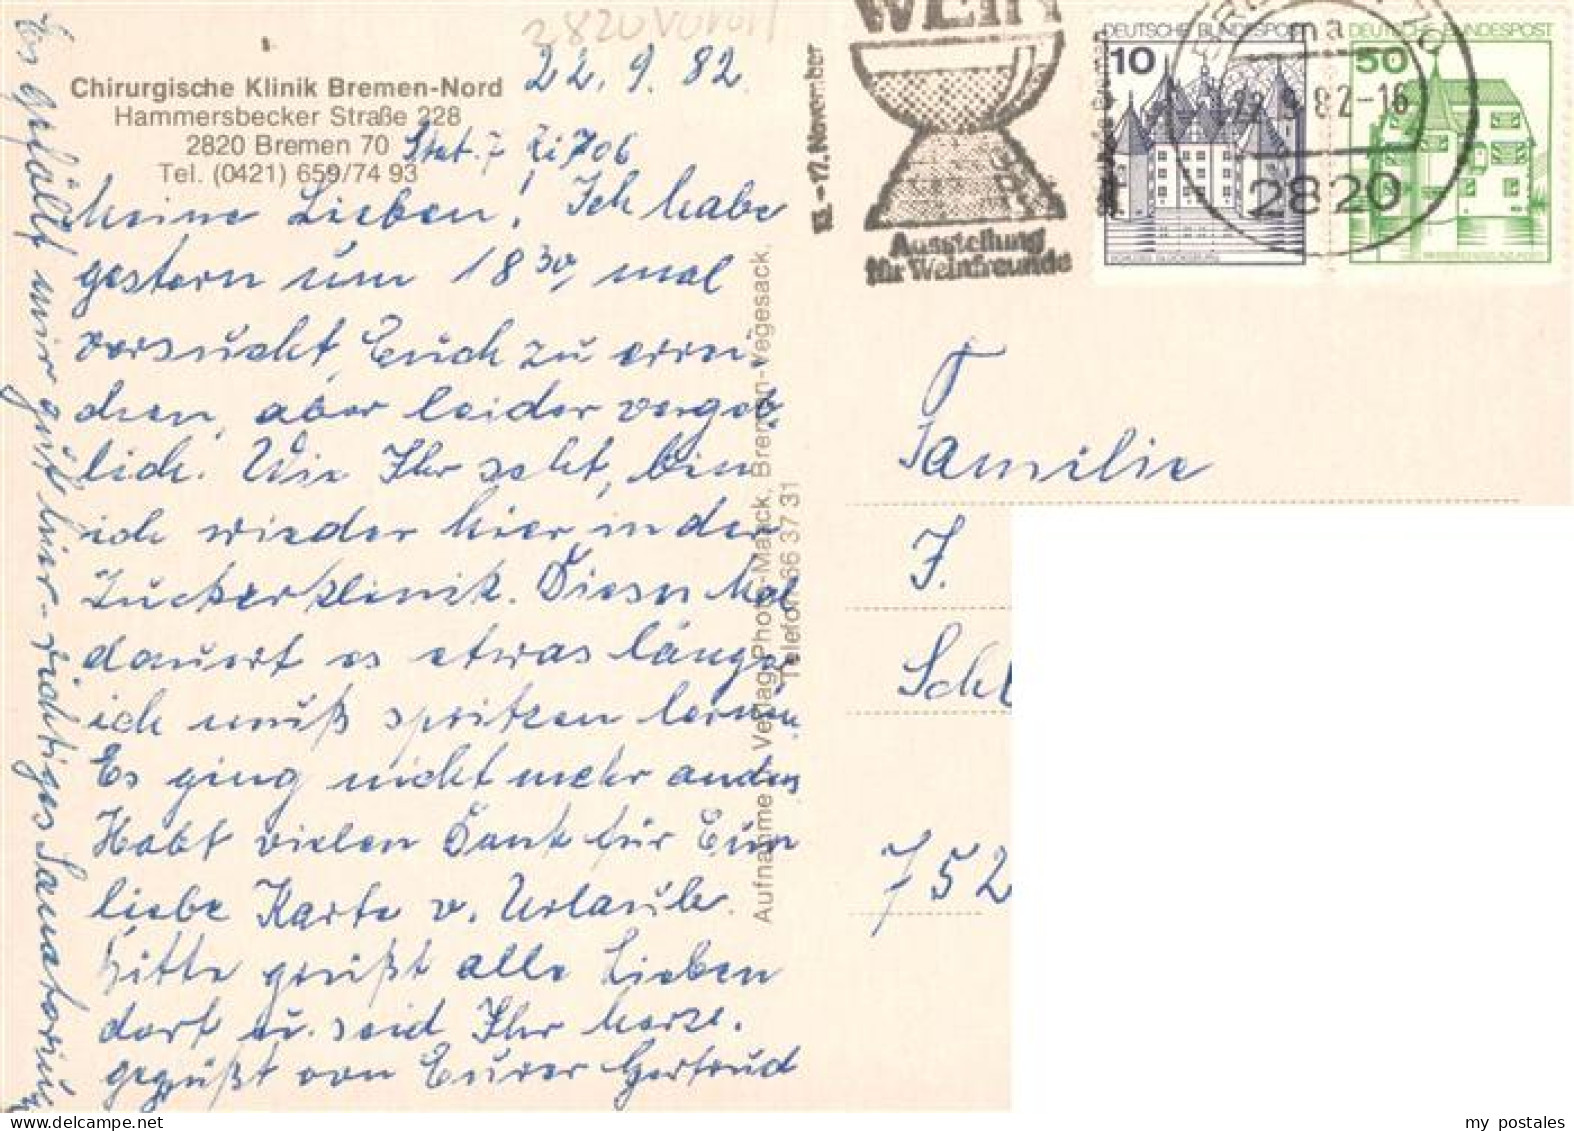 2820
22. 9. 82
Chirurgische Klinik Bremen-Nord
Hammersbecker Straße 228
2820 Bremen 70
Tel. (0421) 659/74 93
Stat. 7 Zi 706
Meine Lieben! Ich habe
gestern um 18 30, mal
versucht, Euch zu errei-
chen, aber leider vergeb-
lich. Wie Ihr seht, bin
ich wieder hier in der
Zuckerklinik. Diesen Mal
dauert es etwas länger
ich muß spritzen lernen
Es ging nicht mehr anders
Habt vielen Dank für Eure
liebe Karte v. Urlaub.
Bitte grüßt alle Lieben
dort u. seid Ihr herzl.
gegrüßt von Eurer Gertrud
Es gefällt mir gut hier - richtiges Sanatorium
Aufnahme u. Verlag: Photo-Maack, Bremen-Vegesack,
Telefon 66 37 31
WEIN
13. - 17. November
Ausstellung
für Weinfreunde
DEUTSCHE BUNDESPOST
10
SCHLOSS GLÜCKSBURG
DEUTSCHE BUNDESPOST
50
ma
22.9.82-16
2820
Familie
J.
Schl
752
my postales